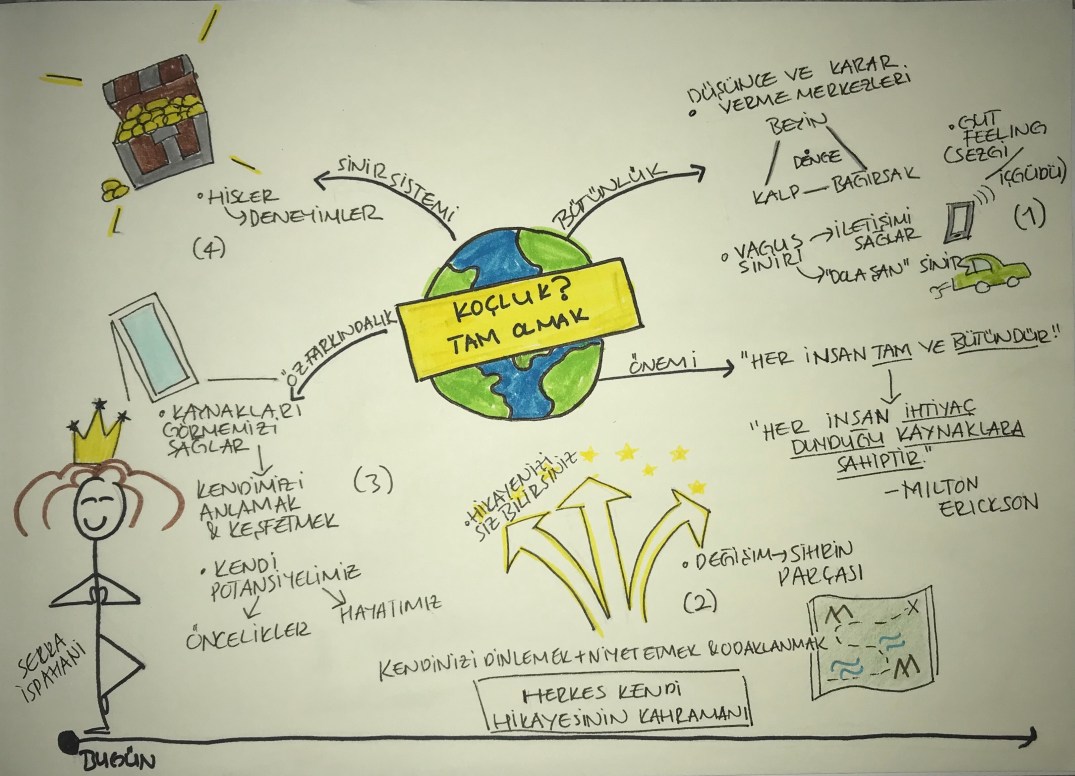 KOÇLUK?
TAM OLMAK
BÜTÜNLÜK
DÜŞÜNCE VE KARAR
VERME MERKEZLERİ
BEYİN
DENGE
KALP — BAĞIRSAK
GUT
FEELING
(SEZGİ /
İÇGÜDÜ)
(1)
VAGUS → İLETİŞİMİ
SİNİRİ
SAĞLAR
"DOLAŞAN" SİNİR
ÖNEMİ
"HER İNSAN TAM VE BÜTÜNDÜR."
"HER İNSAN İHTİYAÇ
DUYDUĞU KAYNAKLARA
SAHİPTİR."
–MILTON
ERICKSON
HİKAYENİZİ
SİZ BİLİRSİNİZ
DEĞİŞİM → SİHRİN
PARÇASI
(2)
KENDİNİZİ DİNLEMEK + NİYET ETMEK & ODAKLANMAK
HERKES KENDİ
HİKAYESİNİN KAHRAMANI
ÖZFARKINDALIK
KAYNAKLARI
GÖRMEMİZİ
SAĞLAR
(3)
KENDİMİZİ
ANLAMAK
& KEŞFETMEK
KENDİ
POTANSİYELİMİZ
ÖNCELİKLER
HAYATIMIZ
SİNİR SİSTEMİ
HİSLER
DENEYİMLER
(4)
SERRA
İSPAHANİ
BUGÜN